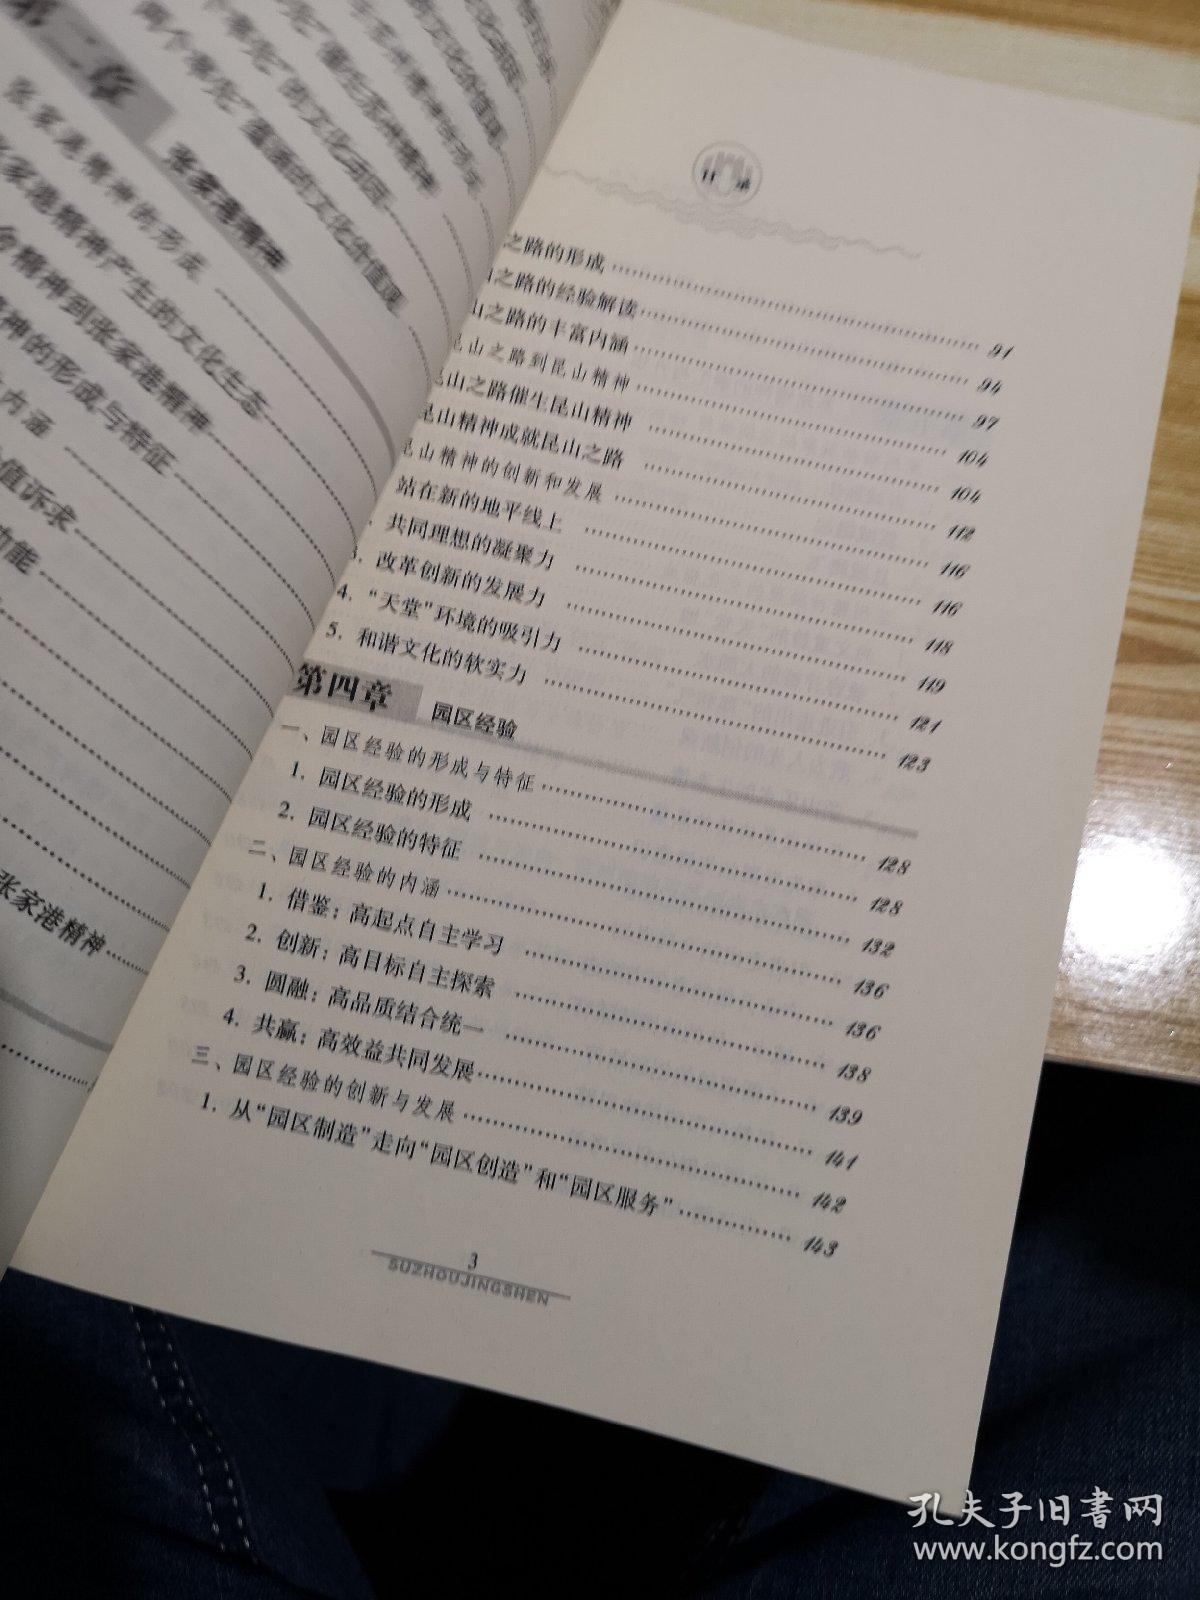 第二章
张家港精神
张家港精神的形成
张家港精神产生的文化生态
精神到张家港精神
神的形成与特征
内涵
值诉求
功能
张家港精神
之路的形成 91
山之路的经验解读 94
山之路的丰富内涵 97
昆山之路到昆山精神 104
昆山之路催生昆山精神 104
昆山精神成就昆山之路 112
昆山精神的创新和发展 116
站在新的地平线上 116
共同理想的凝聚力 118
3. 改革创新的发展力 119
4. “天堂”环境的吸引力 121
5. 和谐文化的软实力 123
第四章 园区经验
一、园区经验的形成与特征 128
1. 园区经验的形成 128
2. 园区经验的特征 132
二、园区经验的内涵 136
1. 借鉴：高起点自主学习 136
2. 创新：高目标自主探索 138
3. 圆融：高品质结合统一 139
4. 共赢：高效益共同发展 141
三、园区经验的创新与发展 142
1. 从“园区制造”走向“园区创造”和“园区服务” 143
3
SUZHOUJINGSHEN
孔夫子旧书网
www.kongfz.com